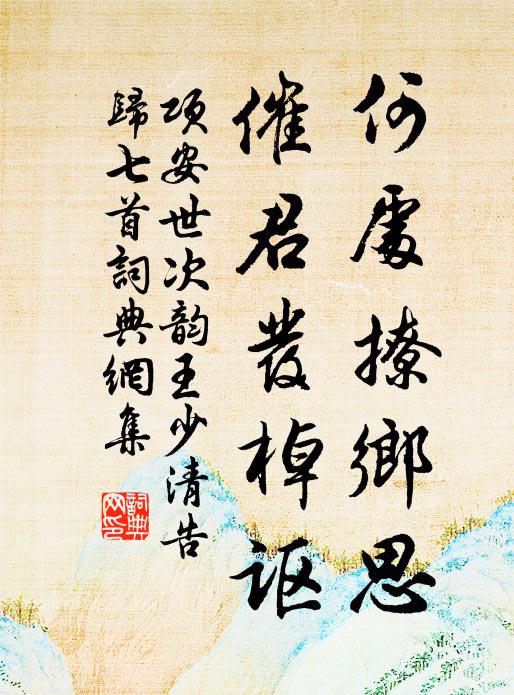 何處撩鄉思
催君發棹謳
項安世次韵王少清告
歸七首詞典網集
詞典
网印